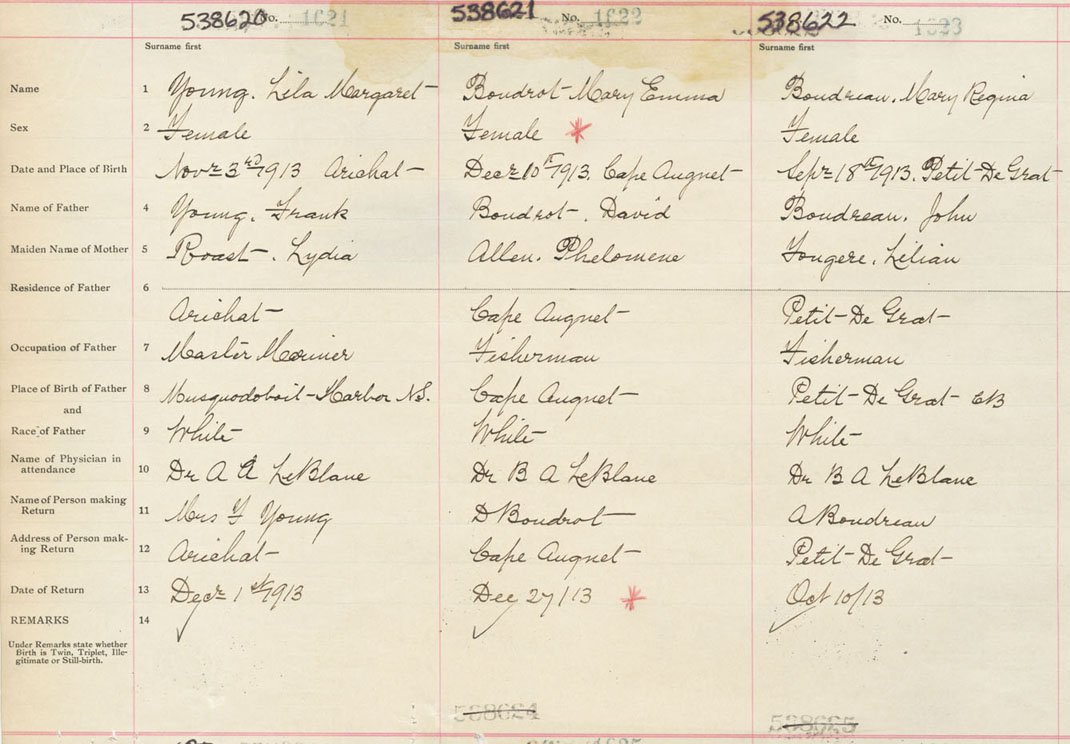 538620 No. 1621 538621 No. 1622 538622 No. 1623
Surname first Surname first Surname first
Name 1 Young. Lila Margaret Boudrot Mary Emma Boudreau. Mary Regina
Sex 2 Female Female * Female
Date and Place of Birth 3 Novr 3rd 1913 Arichat Decr 10th 1913. Cape Auguet Sepr 18th 1913. Petit-De Grat
Name of Father 4 Young. Frank Boudrot. David Boudreau. John
Maiden Name of Mother 5 Roast. Lydia Allen. Phelomene Fougere. Lilian
Residence of Father 6
Arichat Cape Auguet Petit-De Grat
Occupation of Father 7 Master Mariner Fisherman Fisherman
Place of Birth of Father 8 Musquodoboit-Harbor N.S. Cape Auguet Petit-De Grat CB
and
Race of Father 9 White White White
Name of Physician in
attendance 10 Dr A A LeBlanc Dr B A LeBlanc Dr B A LeBlanc
Name of Person making
Return 11 Mrs F Young D Boudrot A Boudreau
Address of Person mak-
ing Return 12 Arichat Cape Auguet Petit-De Grat
Date of Return 13 Decr 1st 1913 Dec 27/13 * Oct 10/13
REMARKS 14
Under Remarks state whether
Birth is Twin, Triplet, Ille-
gitimate or Still-birth.
538624 538625
1625